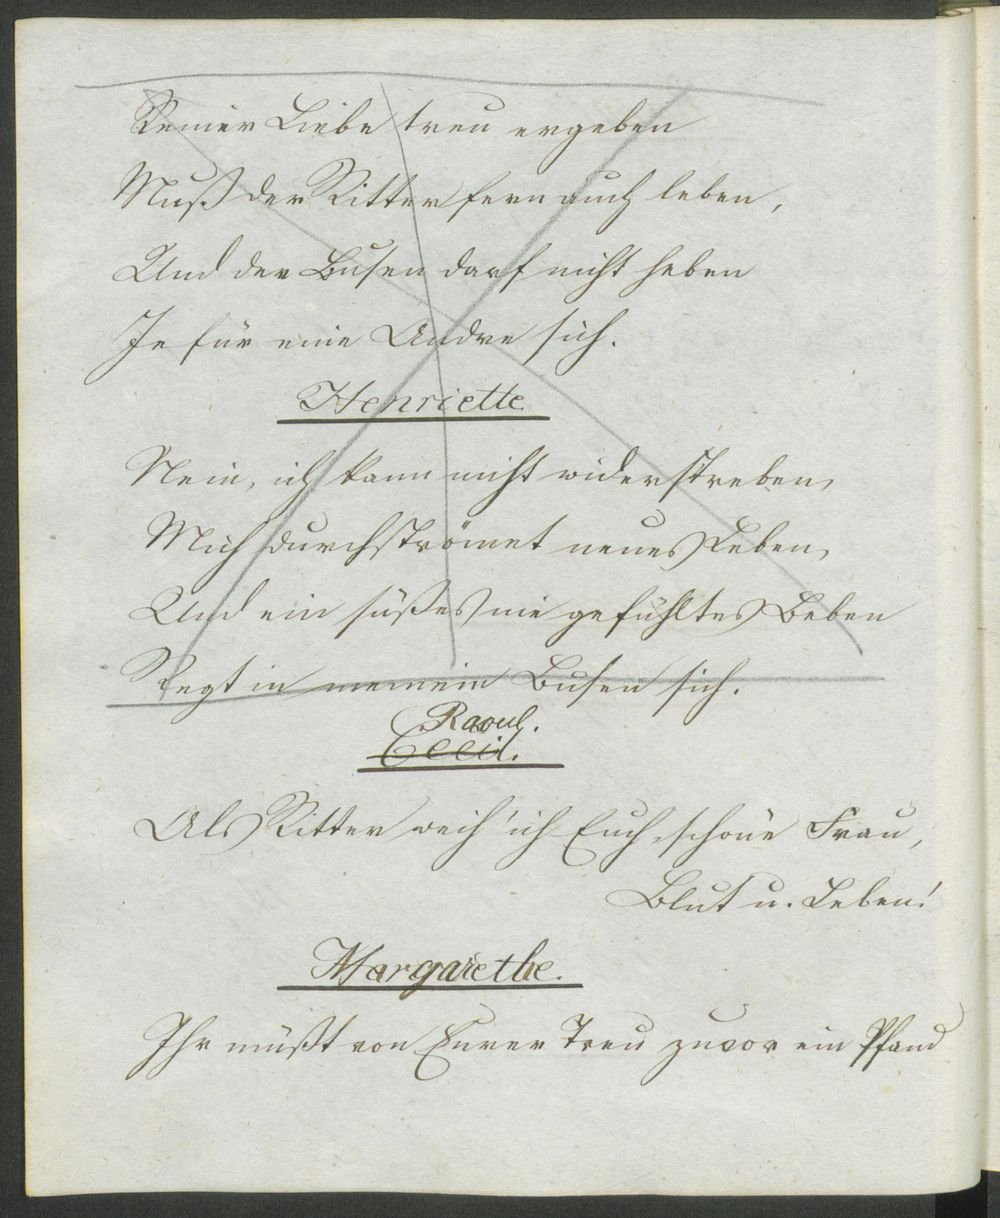 Seiner Liebe treu ergeben
Muß der Ritter fern auch leben,
Und der Busen darf nicht heben
Je für eine Andre sich.
Henriette.
Nein, ich kann nicht widerstreben,
Mich durchströmet neues Leben,
Und ein süßes nie gefühltes Beben
Regt in meinem Busen sich.
Raoul.
Cecil.
Als Ritter weih' ich Euch, schöne Frau,
Blut u. Leben!
Margarethe.
Ihr müßt von Eurer Treu zuvor ein Pfand